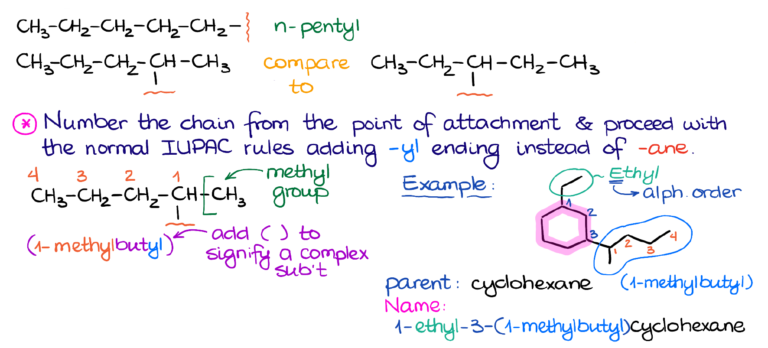 CH₃-CH₂-CH₂-CH₂-CH₂- n-pentyl
CH₃-CH₂-CH₂-CH-CH₃ compare to CH₃-CH₂-CH-CH₂-CH₃
* Number the chain from the point of attachment & proceed with
the normal IUPAC rules adding -yl ending instead of -ane.
4 3 2 1
CH₃-CH₂-CH₂-CH-CH₃
methyl
group
(1-methylbutyl)
add ( ) to
signify a complex
sub't
Example:
Ethyl
alph. order
1 2 3
1 2 3 4
parent: cyclohexane (1-methylbutyl)
Name:
1-ethyl-3-(1-methylbutyl)cyclohexane